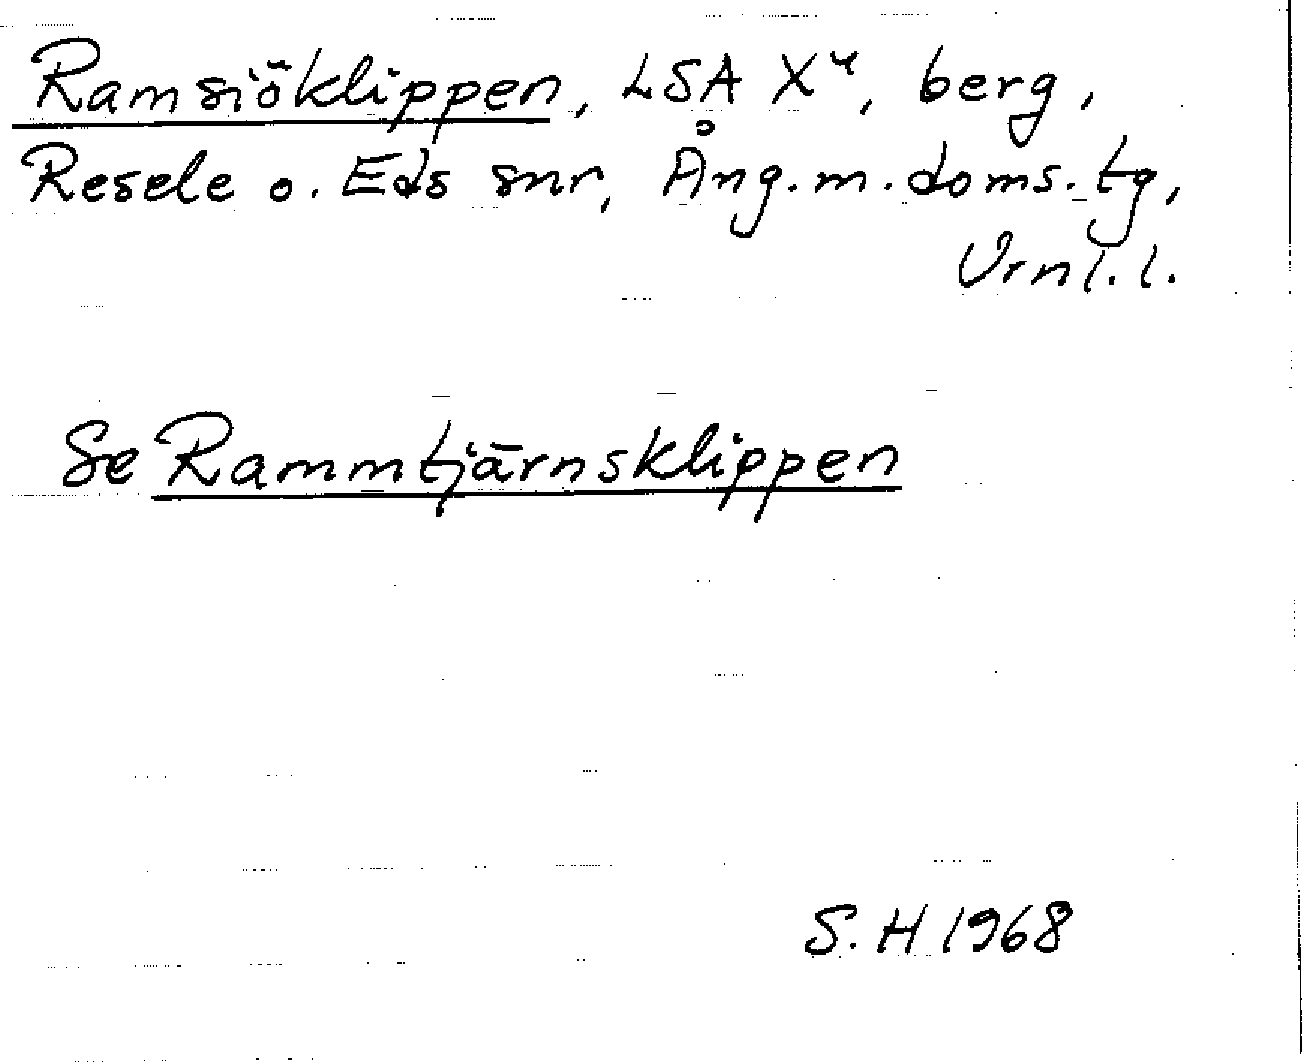 Ramsiöklippen, LSA X⁴, berg,
Resele o. Eds snr, Ång. m. doms. tg,
Vrnl. l.
Se Rammtjärnsklippen
S. H 1968